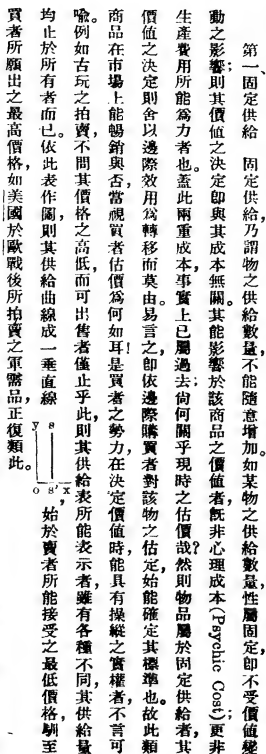 第一、固定供給　固定供給乃謂物之供給數量，不能隨意增加。如某物之供給數量，性屬固定，卽不受價値變
動之影響；則其價値之決定卽與其成本無關。其能影響於該商品之價値者，旣非心理成本(Psychic Cost)；更非
生產費用所能爲力者也。蓋此兩重成本，事實上已屬過去；尙何關乎現時之估價哉？然則物品屬於固定供給者，其
價値之決定則舍以邊際效用爲轉移而莫由。易言之，卽依邊際購買者對該物之估定，始能確定其標準也。故此類
商品在市場上能暢銷與否，當視買者估價爲何如耳！是買者之勢力，在決定價値時，能具有操縱之實權者，不言可
喩。例如古玩之拍賣，不問其價格之高低，而可出售者僅止乎此；則其供給表所能表示者，雖有各種不同，其供給量
均止於所有者而已。依此表作圖，則其供給曲線成一垂直線
y s
o s' x
，始於賣者所能接受之最低價格，馴至
買者所願出之最高價格，如美國於歐戰後所拍賣之軍需品，正復類此。